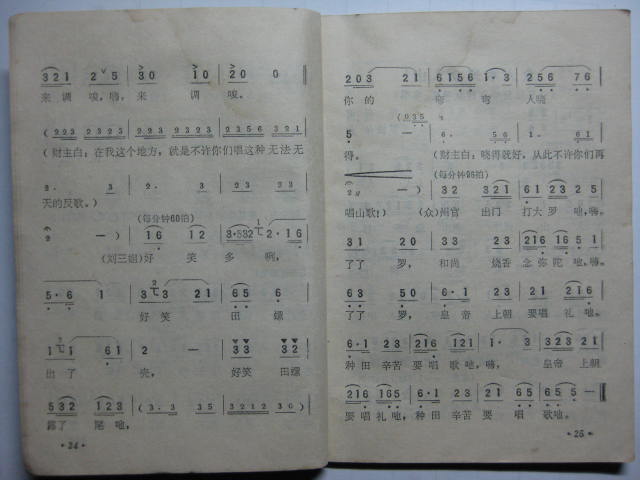 3 2 1 2 5 | 3 0 1 0 | 2 0 0
来调 唆,嗨, 来 调 唆。
( 2 2 3 2 2 3 | 2 2 3 2 2 3 | 2 2 3 2 2 3 | 2 3 5 6 3 2 1
(财主白:在我这个地方,就是不许你们唱这种无法无
2· 3· | 2· 3· | 2· 3· | 2· 3· )
天的反歌。)
(每分钟60拍)
2 — ) | 1 6 1 2 | 3·5 3 2 2·1 6
(刘三姐)好 笑 多 啊,
5·6 1 | 3 3 2 1 | 6 5 5
好笑 田 螺
1 1 6 1 | 2 — | 3 3 3 2
出了 壳, 好笑 田螺
5 3 2 1 2 3 | ( 2· 3 2 3 5 | 3 2 1 2 3 0 )
尾吔,
·24·
2 0 3 2 1 | 6 1 5 6 1·3 | 2 5 6 7 6
你的 人晓
5 — | 1· | 1·
得。 (财主白:晓得就好,从此不许你们再
(每分钟96拍)
2 — ) | 3 2 3 2 1 | 6 1 2 3 2 5
唱山歌!) (众)州官 出门 打大 罗 吔,嗨。
3 1 5 0 | 2 3 2 1 | 2 1 6 1 6 5
了了 罗, 和尚 烧香 念弥陀 吔,嗨。
6 3 5 0 | 2 3 2 1 | 2 1 6
了了 罗, 皇帝 上朝 要唱 礼吔。
6·1 2 3 | 2 3 1 2 | 3 2 1 2
种田 辛苦 要唱 歌吔,嗨, 皇帝 上朝
2 1 6 1 6 5 | 6·1 2 3 | 2 1 | 6 5 5 —
要唱 礼吔,种田 辛苦 要 唱 歌吔。
·25·